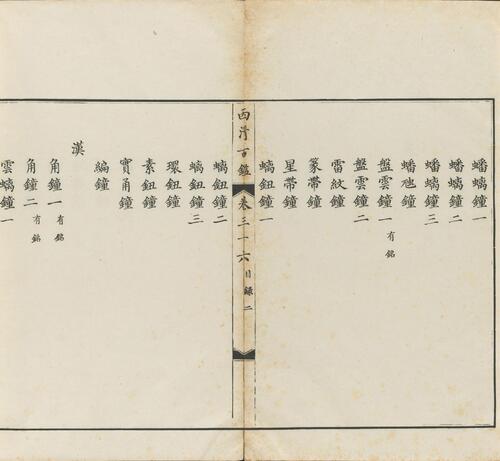 蟠螭鐘一
蟠螭鐘二
蟠螭鐘三
蟠虺鐘
盤雲鐘一有銘
盤雲鐘二
雷紋鐘
篆帶鐘
星帶鐘
螭鈕鐘一
西清古鑑 卷三十六 目錄 二
螭鈕鐘二
螭鈕鐘三
環鈕鐘
素鈕鐘
寶甬鐘
編鐘
漢
角鐘一有銘
角鐘二有銘
雲螭鐘一